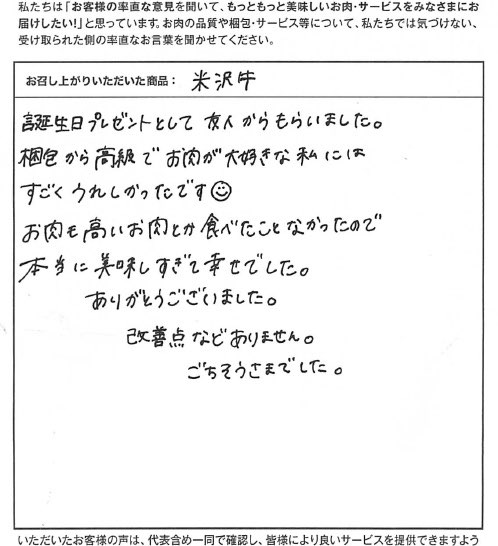 私たちは「お客様の率直な意見を聞いて、もっともっと美味しいお肉・サービスをみなさまにお
届けしたい!」と思っています。お肉の品質や梱包・サービス等について、私たちでは気づけない、
受け取られた側の率直なお言葉を聞かせてください。
お召し上がりいただいた商品： 米沢牛
誕生日プレゼントとして 友人からもらいました。
梱包から高級でお肉が大好きな私には
すごくうれしかったです☺
お肉も高いお肉とか食べたことなかったので
本当に美味しすぎて幸せでした。
ありがとうございました。
改善点などありません。
ごちそうさまでした。
いただいたお客様の声は、代表含め一同で確認し、皆様により良いサービスを提供できますよう